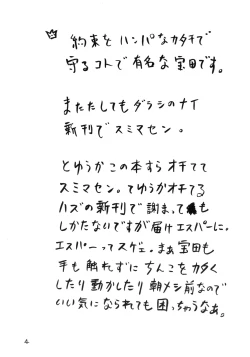 約束を ハンパなカタチで
守るコトで有名な宝田です。
またたしてもダラシのナイ
新刊でスミマセン。
とゆうかこの本すらオチてて
スミマセン。てゆうかオチてる
ハズの新刊で謝まってても
しかたないですが届けエスパーに。
エスパーってスゲェ。まぁ宝田も
手も触れずにちんこをカタく
したり動かしたり朝メシ前なので
いい気になられても困っちゃうなぁ。
4